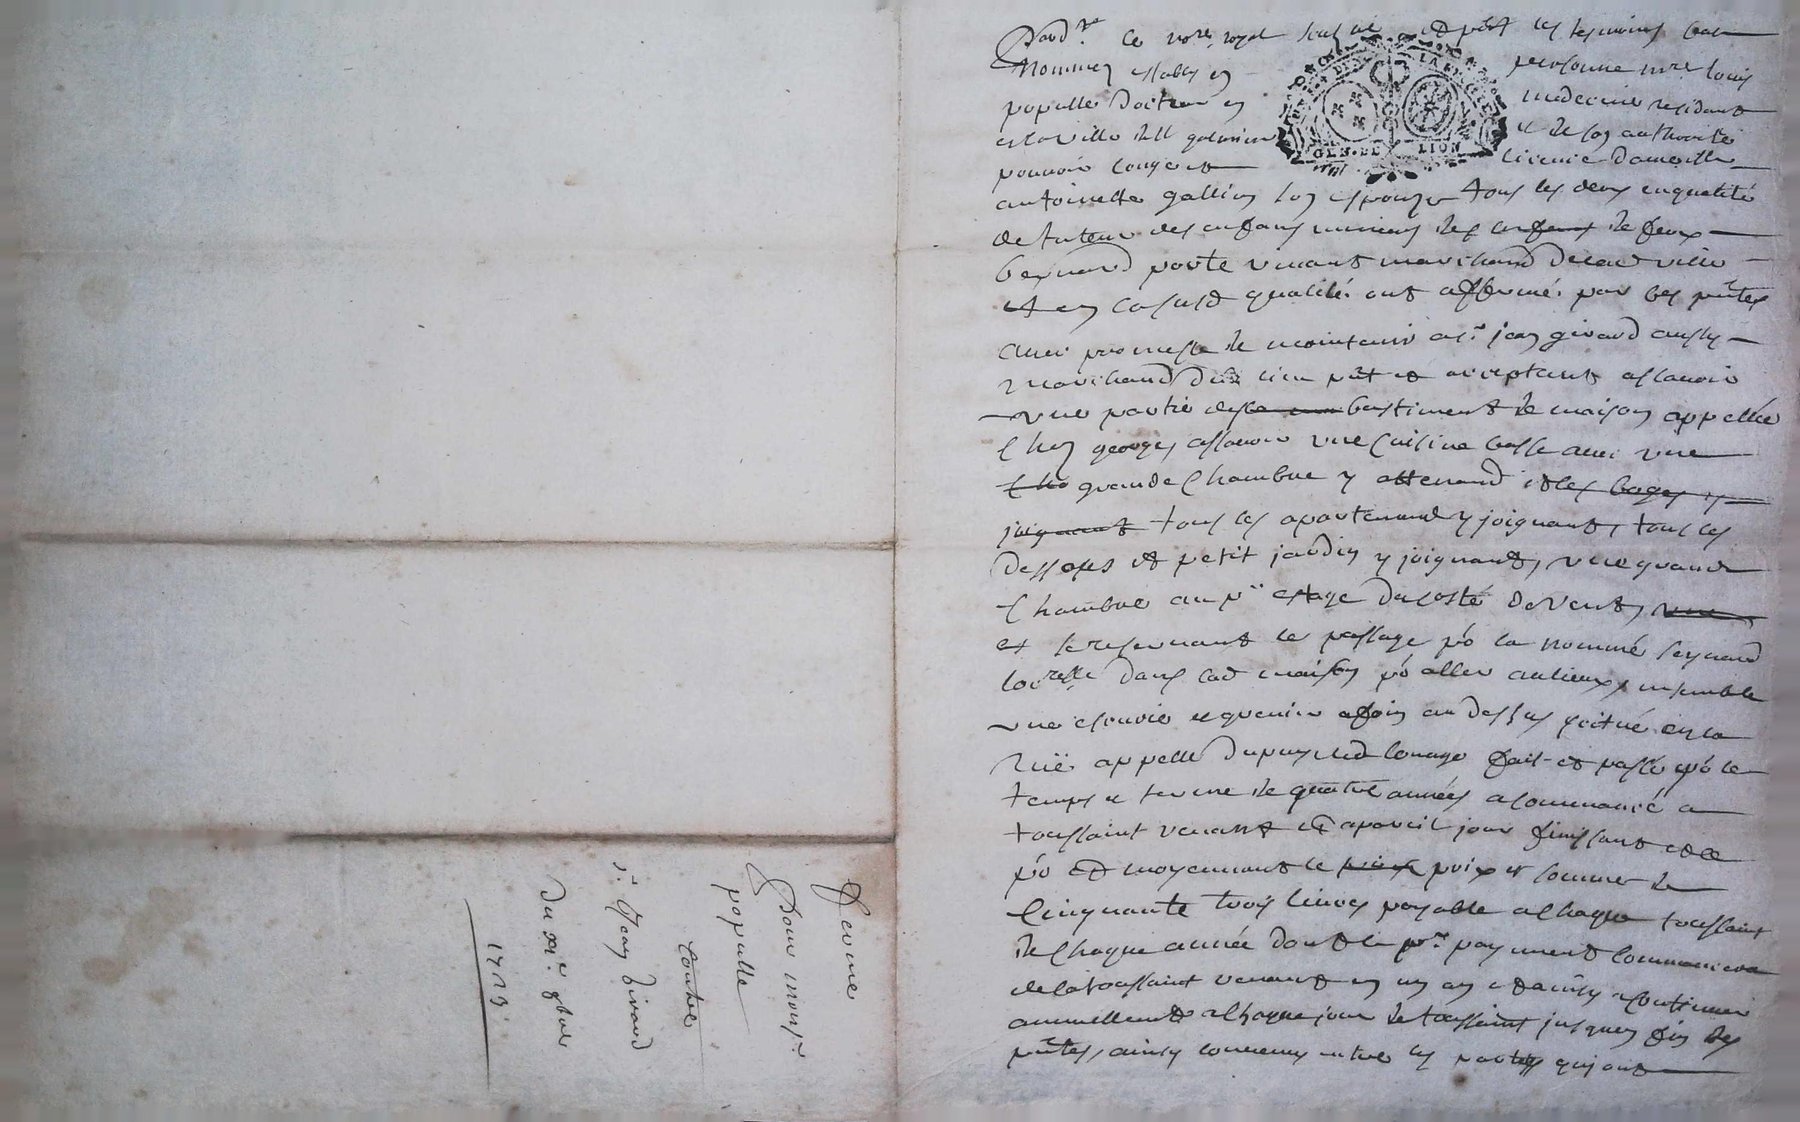 Pard.t le no.re royal soub.né et p.nt les tesmoins bas
nommez estably en personne m.re louis
populle docteur en medecine residant
en la ville de s.t galmier et de son authorité
pouvoir congé et licence damoiselle
antoinette gallien son espouze tous les deux en qualité
de tuteur des enfans mineurs de feux
bernard poste vivant marchand de lad. ville
et en lad. qualité ont affermé par ces p.ntes
avec promesse de maintenir a s.r jean girard aussy
marchand dud. lieu p.nt et acceptant assavoir
une partie des bastiment de maison appellée
chez georges assavoir une cuisine basse avec une
grande chambre y attenand et les
joignant tous les apartemend y joignants, tous les
dessous et petit jardin y joignant, une grande
chambre au p.r estage du costé de vent,
et se reservant le passage p.o la nommé
dans lad. maison p.o aller au lieux, ensemble
une escurie et grenier a foin au dessus scitué en la
ruë appellé du puy led. louage fait et passé p.o le
temps et terme de quatre années a commancé a
toussaint venant et a pareil jour finissant et ce
p.o et moyennant le prix prix et somme de
cinquante trois livres payable a chaque toussaint
de chaque année dont le p.r payement commancera
de la toussaint venant en un an et ainsy a continuer
annuellement a chaque jour de toussaint jusques fin des
p.ntes, ainsy convenu entre les parties qui ont
GEN. DE LION
Ferme
Pour mons.r
populle
Contre
s.r Jean Girard
Du xi.e 9bre
1713